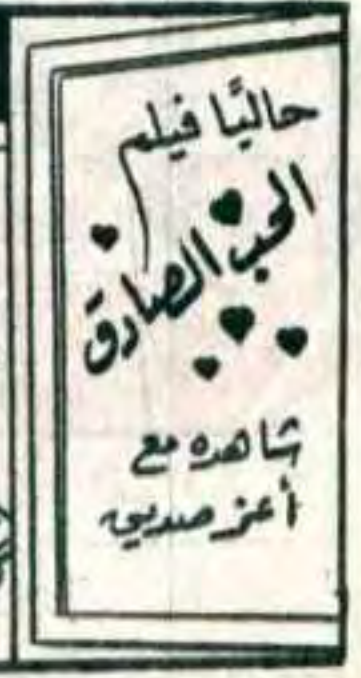 حاليًا فيلم
الحب الصادق
شاهده مع
أعز صديق